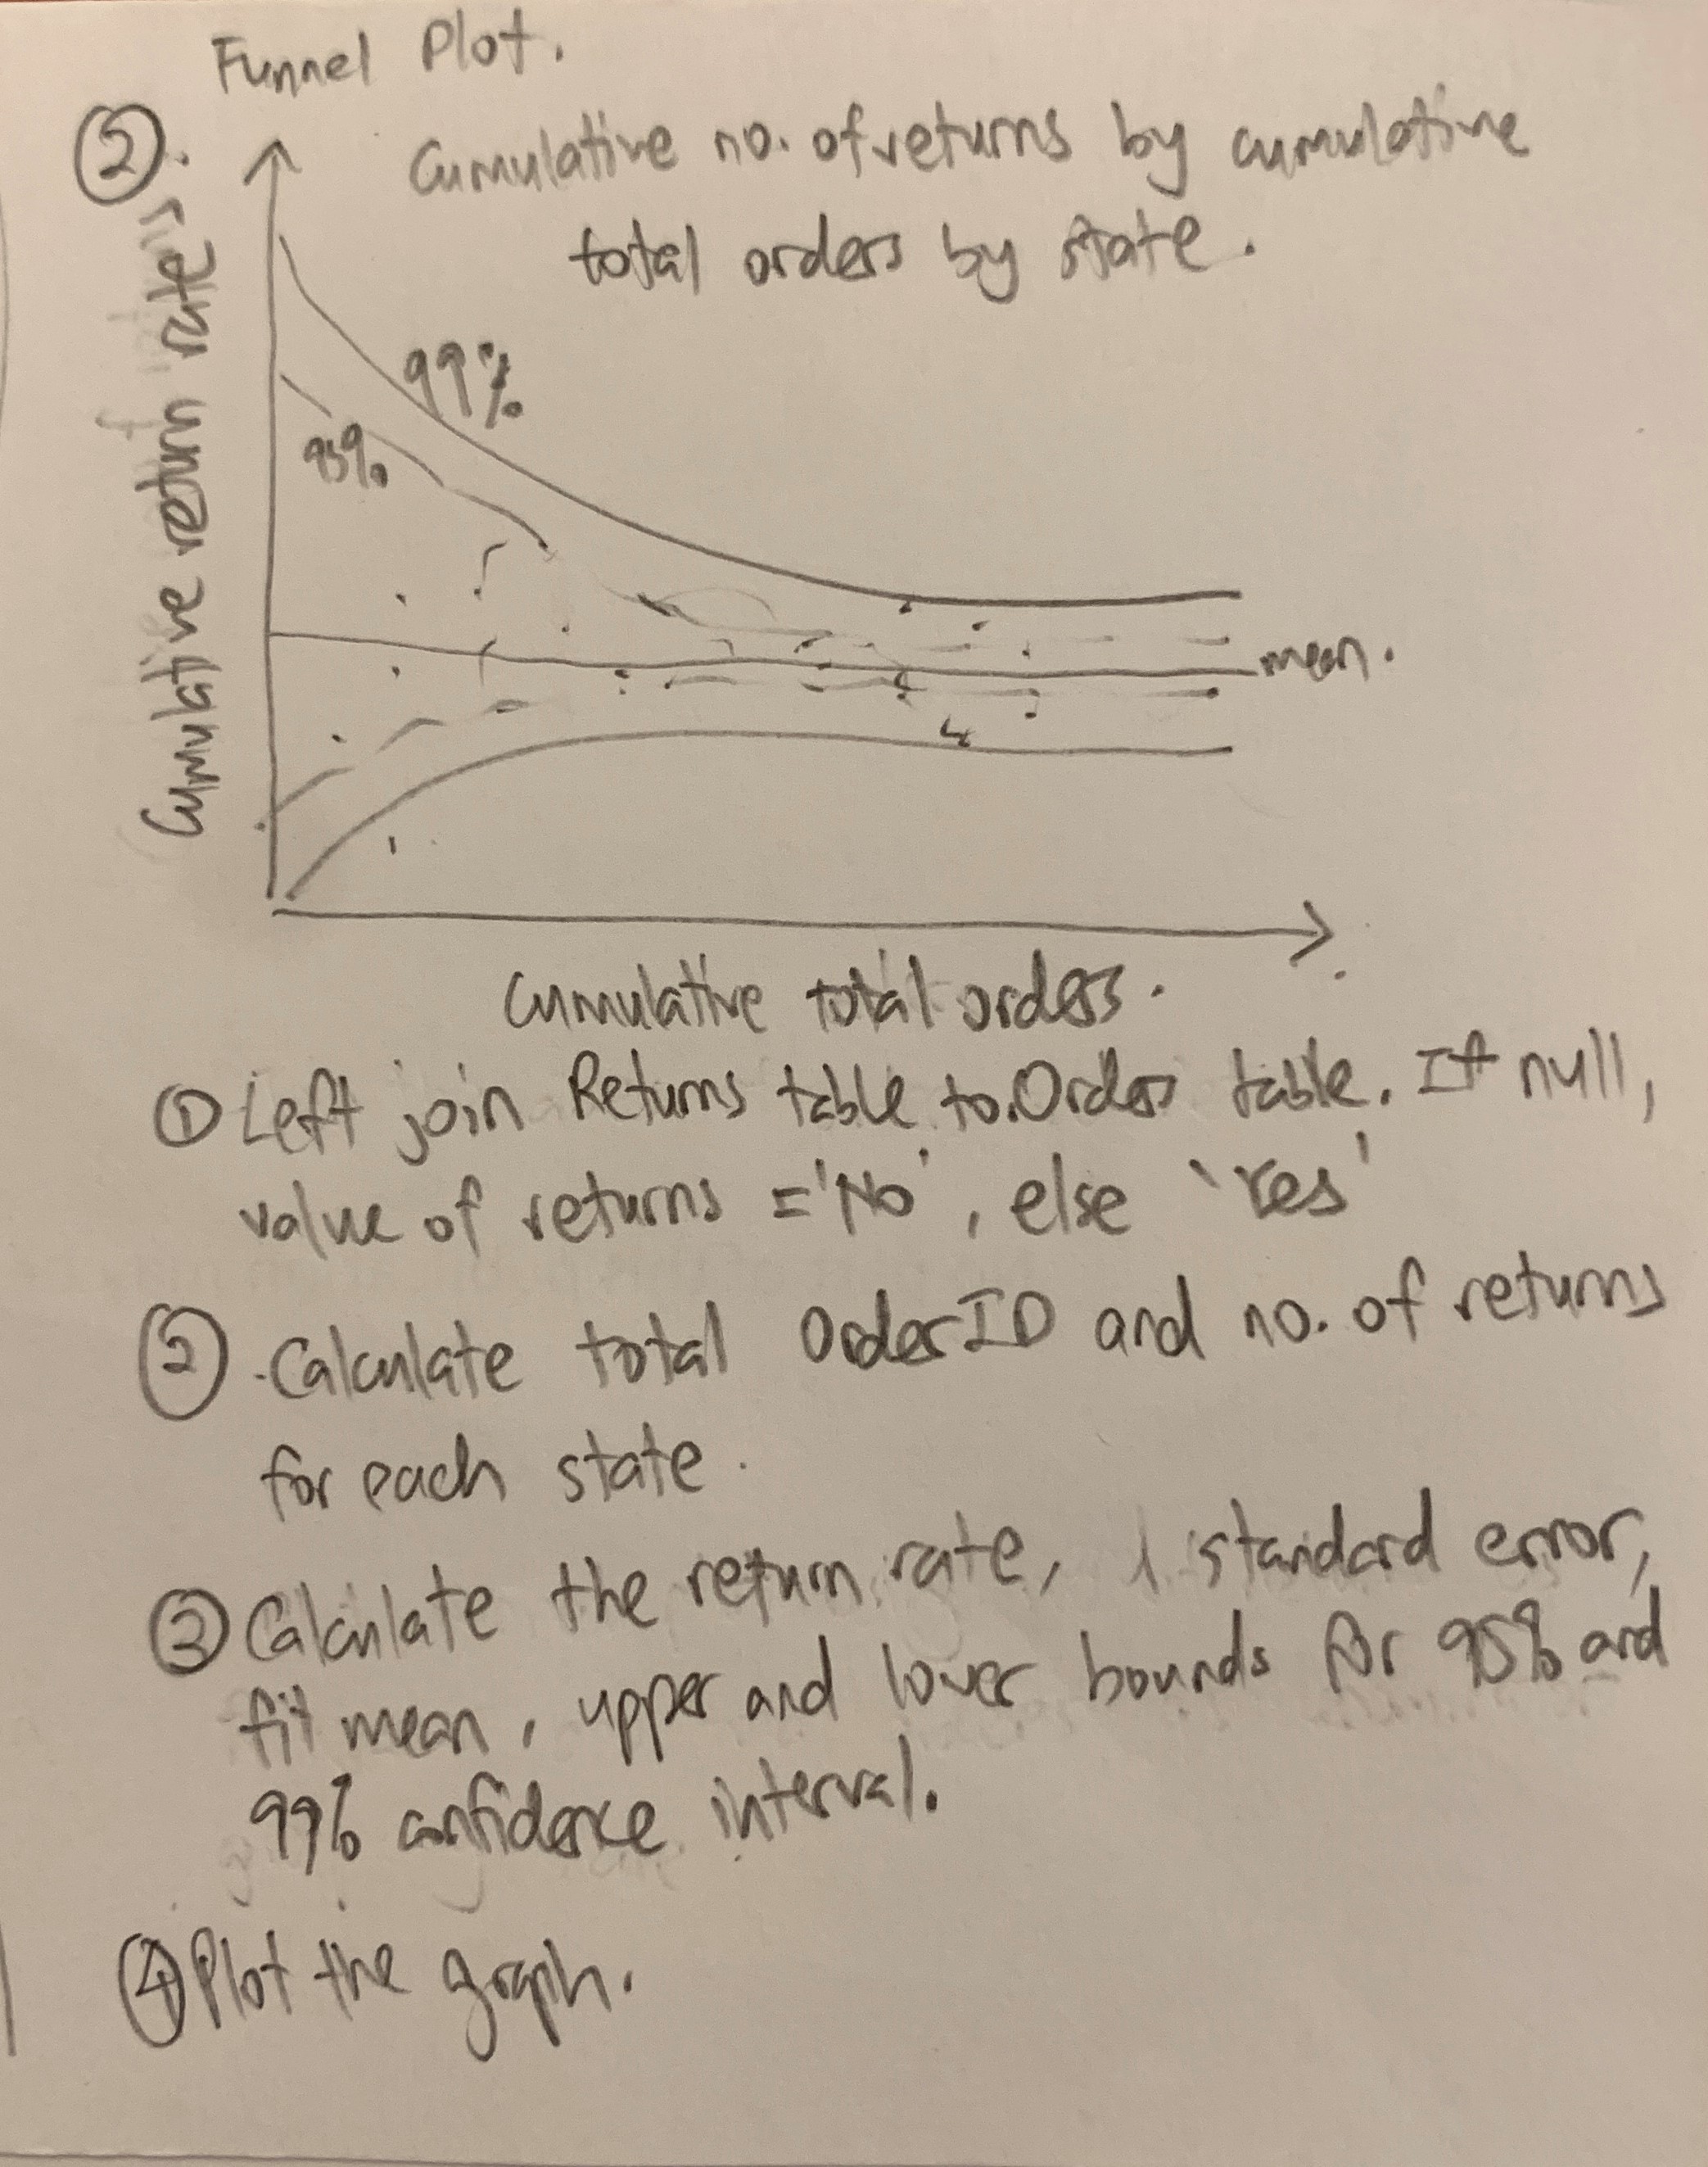 Funnel Plot.
②.
Cumulative no. of returns by cumulative
total orders by state.
Cumulative return rate
99%
95%
mean.
Cumulative total orders.
① Left join Returns table to Orders table. If null,
value of returns = 'No', else 'Yes'
② Calculate total OrderID and no. of returns
for each state.
③ Calculate the return rate, standard error,
fit mean, upper and lower bounds for 95% and
99% confidence interval.
④ Plot the graph.